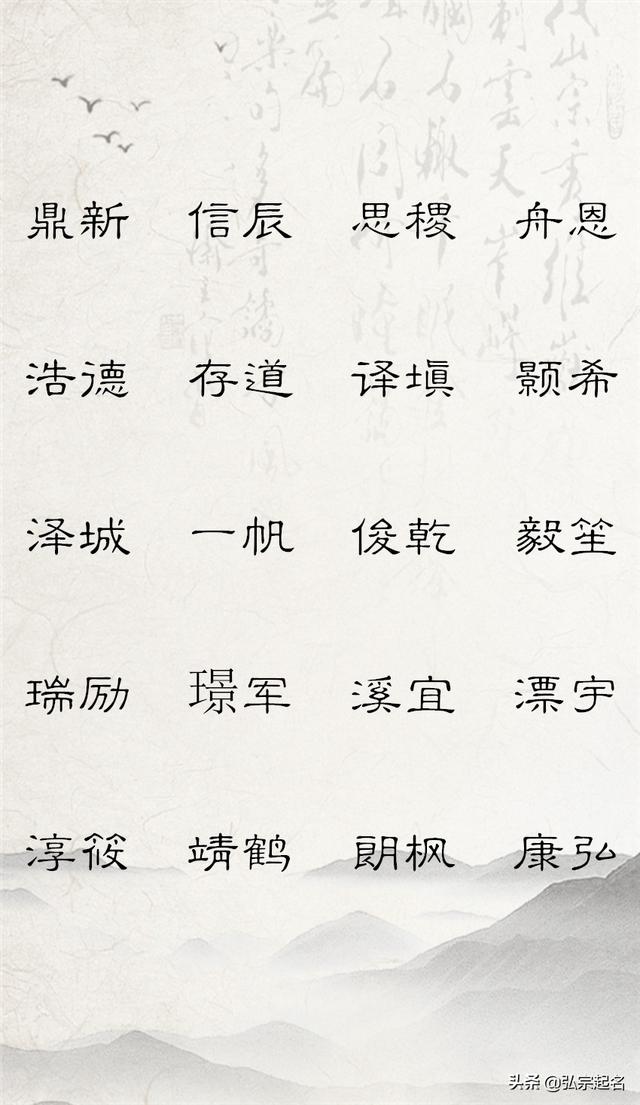 鼎新 信辰 思稷 舟恩
浩德 存道 译填 颢希
泽城 一帆 俊乾 毅笙
瑞励 璟军 溪宜 漂宇
淳筱 靖鹤 朗枫 康弘
头条 @弘宗起名